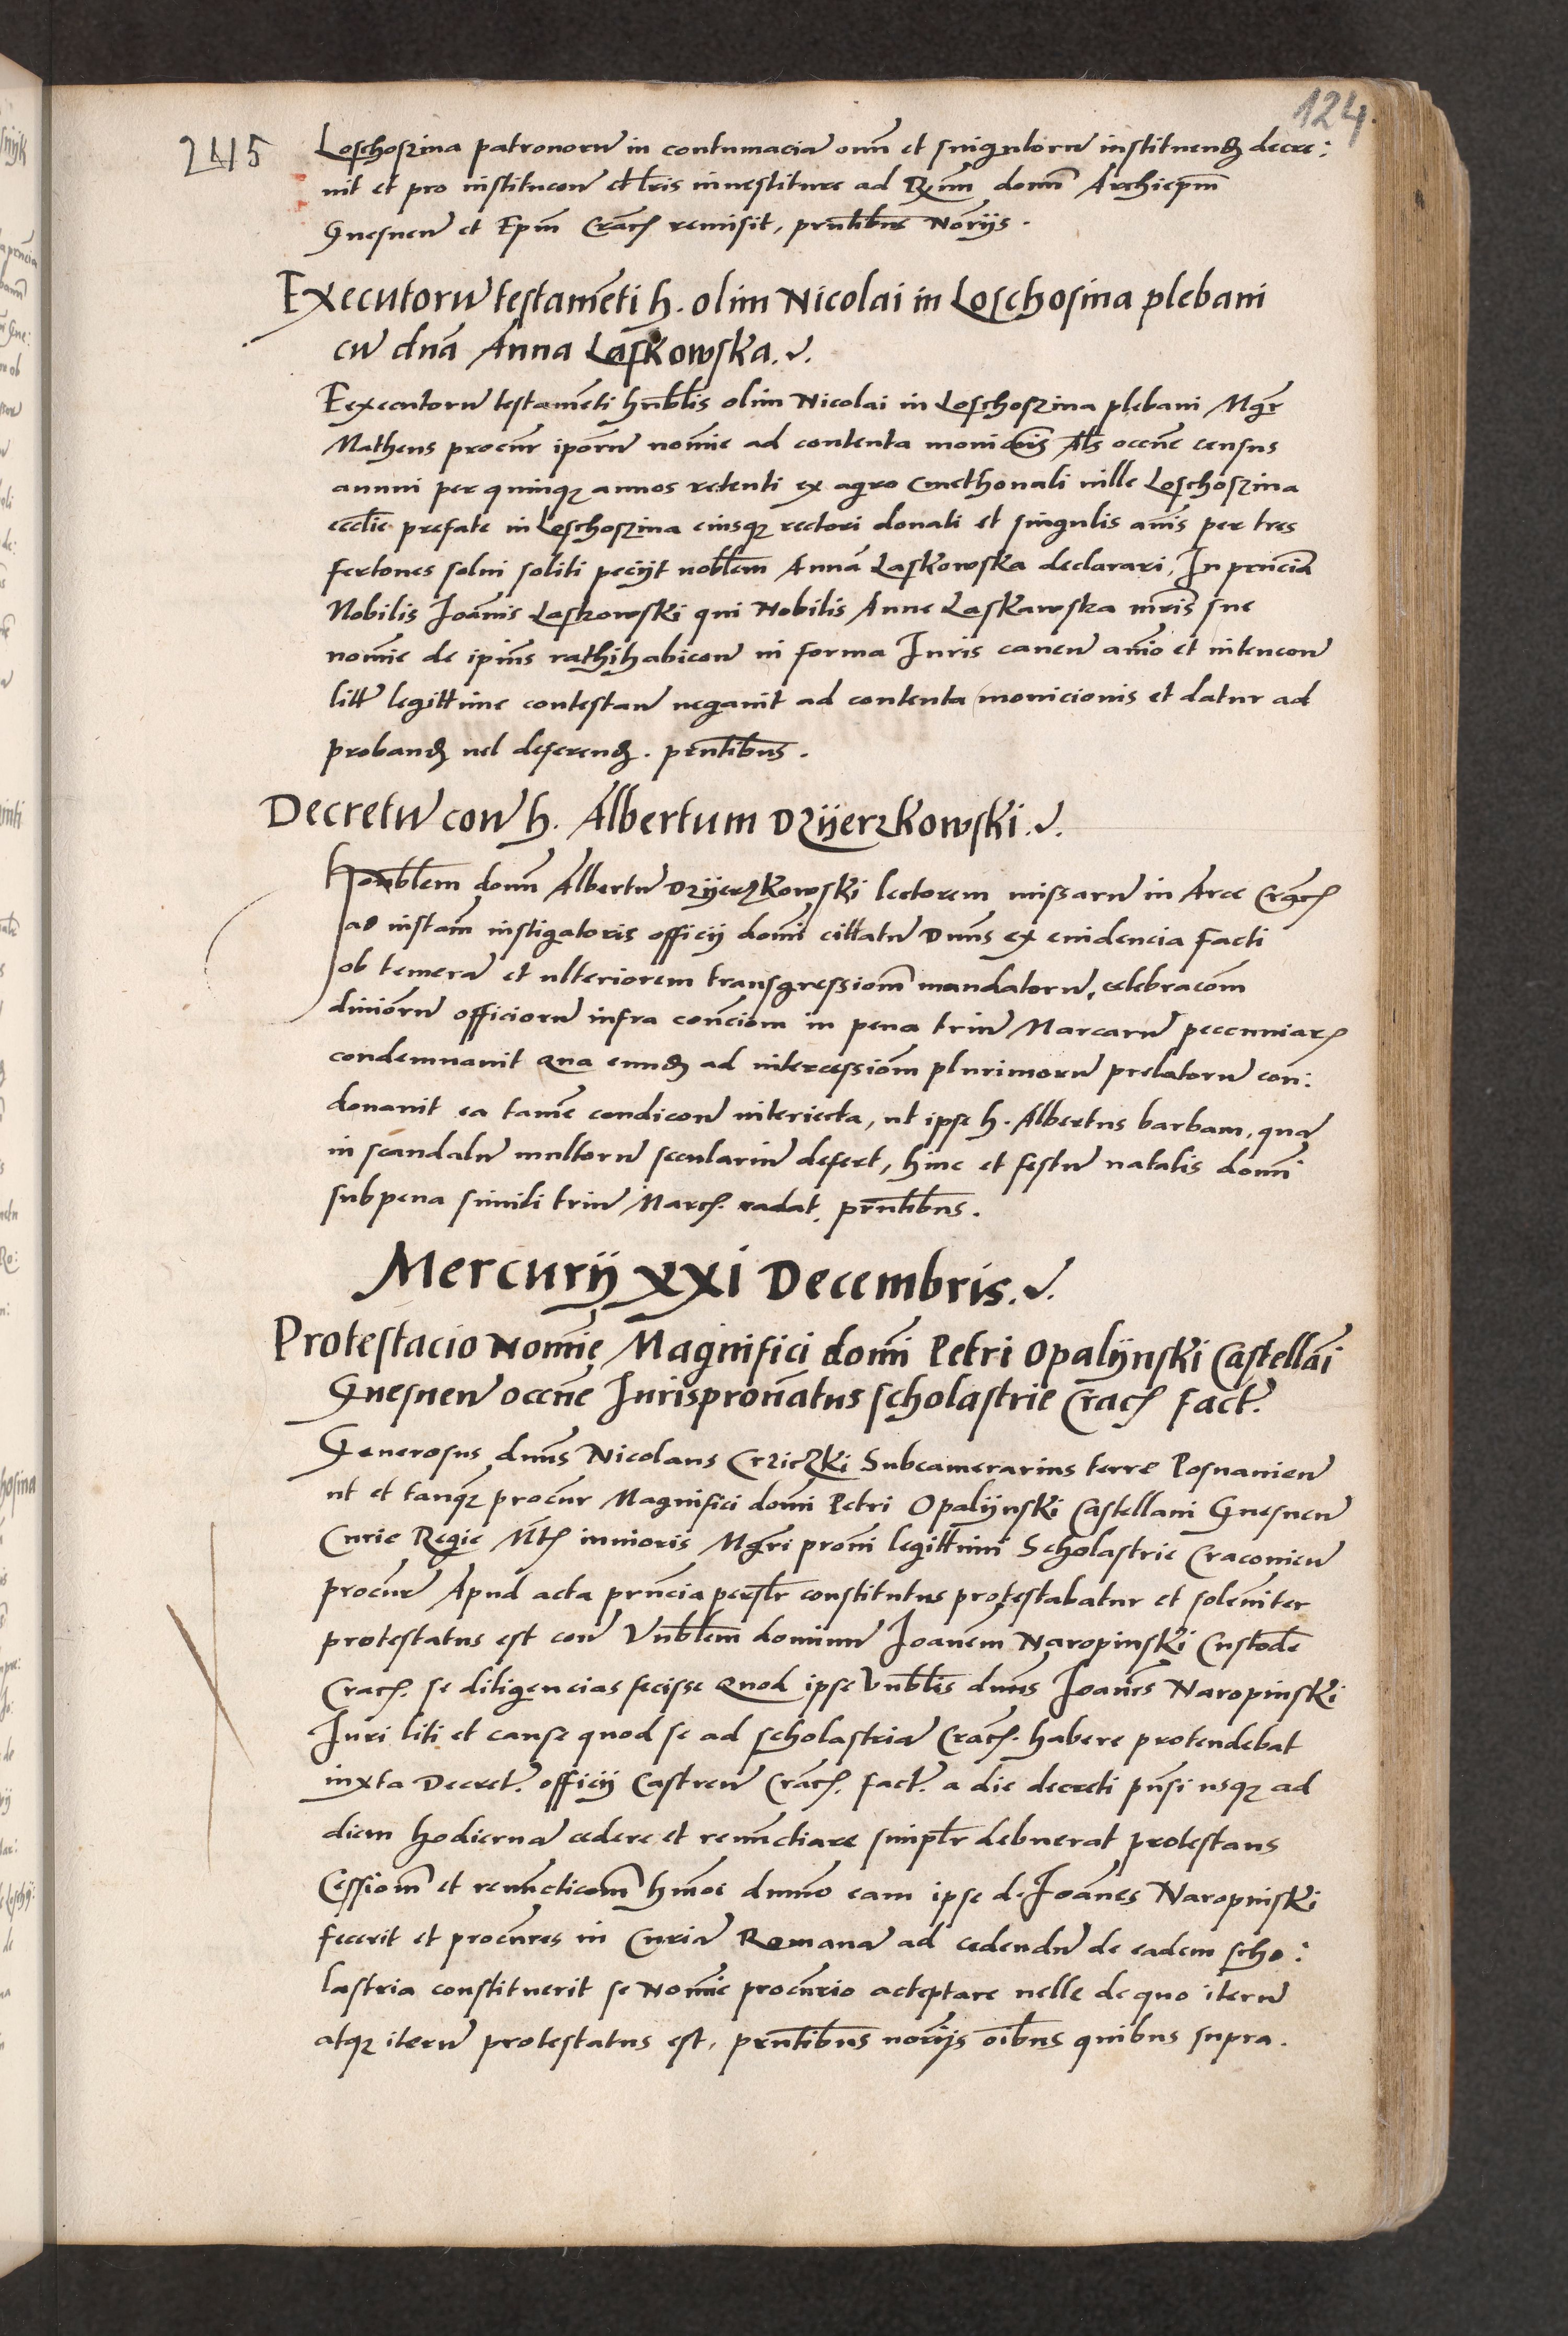 124
245
Loschoszina patronorũ in contumaciã om̃ et singulorũ instituend decre:
uit et pro institucoñ et lr̃is inuestiture ad Rm̃m dom̃ Archiep̃m
Gnesneñ et Ep̃m Crac̃ remisit, pñtibus Nõrijs.
Executorũ testamẽti h. olim Nicolai in Loschosina plebani
cũ dnã Anna Laskowska.
Eexecutorũ testamẽti hñblis olim Nicolai in Loschoszina plebani Mgr̃
Matheus procur̃ ipõrũ nomĩe ad contenta monicõis Als occñe census
annui per quinqz annos retenti ex agro Cmethonali uille Loschoszina
eccl̃ie prefate in Loschoszina eiusqz rectori donati et singulis añis per tres
fertones solui soliti pecijt nobl̃em Annã Laskowska declarari, In pñcia
Nobilis Joãnis Laskowski qui Nobilis Anne Laskawska mr̃is sue
nomĩe de ipĩus rathihabicoñ in forma Juris caneñ aĩo et intencoñ
litt̃ legittime contestañ negauit ad contenta monicionis et datur ad
proband uel deferend. pñtibus.
Decretũ coñ h. Albertum Dzÿerzkowski.
Honobl̃em dom̃ Albertũ Dzÿerzkowski lectorem missarũ in Arce Crac̃
ad instañ instigatoris officij domĩ citatũ Dñus ex euidencia facti
ob temerã et ulteriorem transgressiom̃ mandatorũ, celebracõm
diuiõrũ officiorũ infra concĩom in pena triũ Marcarũ peccuniar̃
condemnauit Qua eund ad intercessiõm plurimorũ prelatorũ con:
donauit ea tamẽ condicoñ interiecta, ut ipse h. Albertus barbam, quã
in scandalũ multorũ seculariũ defert, hinc et festũ natalis domĩ
sub pena simili triũ Marc̃. radat. pñtibus.
Mercurij xxi Decembris.
Protestacio Nomĩe Magnifici domĩ Petri Opalÿnski Castellãi
Gnesneñ occñe Jurispronãtus scholastrie Crac̃ fact̃.
Generosus dñus Nicolaus Crziczki Subcamerarius terre Posnanieñ
ut et tanqz procur̃ Magnifici domĩ Petri Opalÿnski Castellani Gnesneñ
Curie Regie Mt̃ iunioris Mgr̃i proñi legittimi Scholastrie Cracouieñ
procur̃ Apud acta pñcia persl̃r constitutus protestabatur et solẽniter
protestatus est coñ Vnbl̃em dominũ Joanẽm Naropinski Custodẽ
Crac̃. se diligencias fecisse Quod ipse Vnbl̃is dñus Joanẽs Naropinski
Juri liti et causę quod se ad scholastriã Crac̃. habere protendebat
iuxta Decret̃. officij Castreñ Crac̃. fact̃. a die decreti pñsi usqz ad
diem hodiernã cedere et renũctiare simpl̃r debuerat protestans
Cessiom̃ et renũcticom̃ hmõi dummo eam ipse d. Joãnes Naropinski
fecerit et procur̃es in Curiã Romanã ad cedendũ de eadem scho:
lastria constituerit se Nomĩe procur̃io acteptare uelle de quo iterũ
atqz iterũ protestatus est, pñtibus nor̃ijs oĩbus quibus supra.